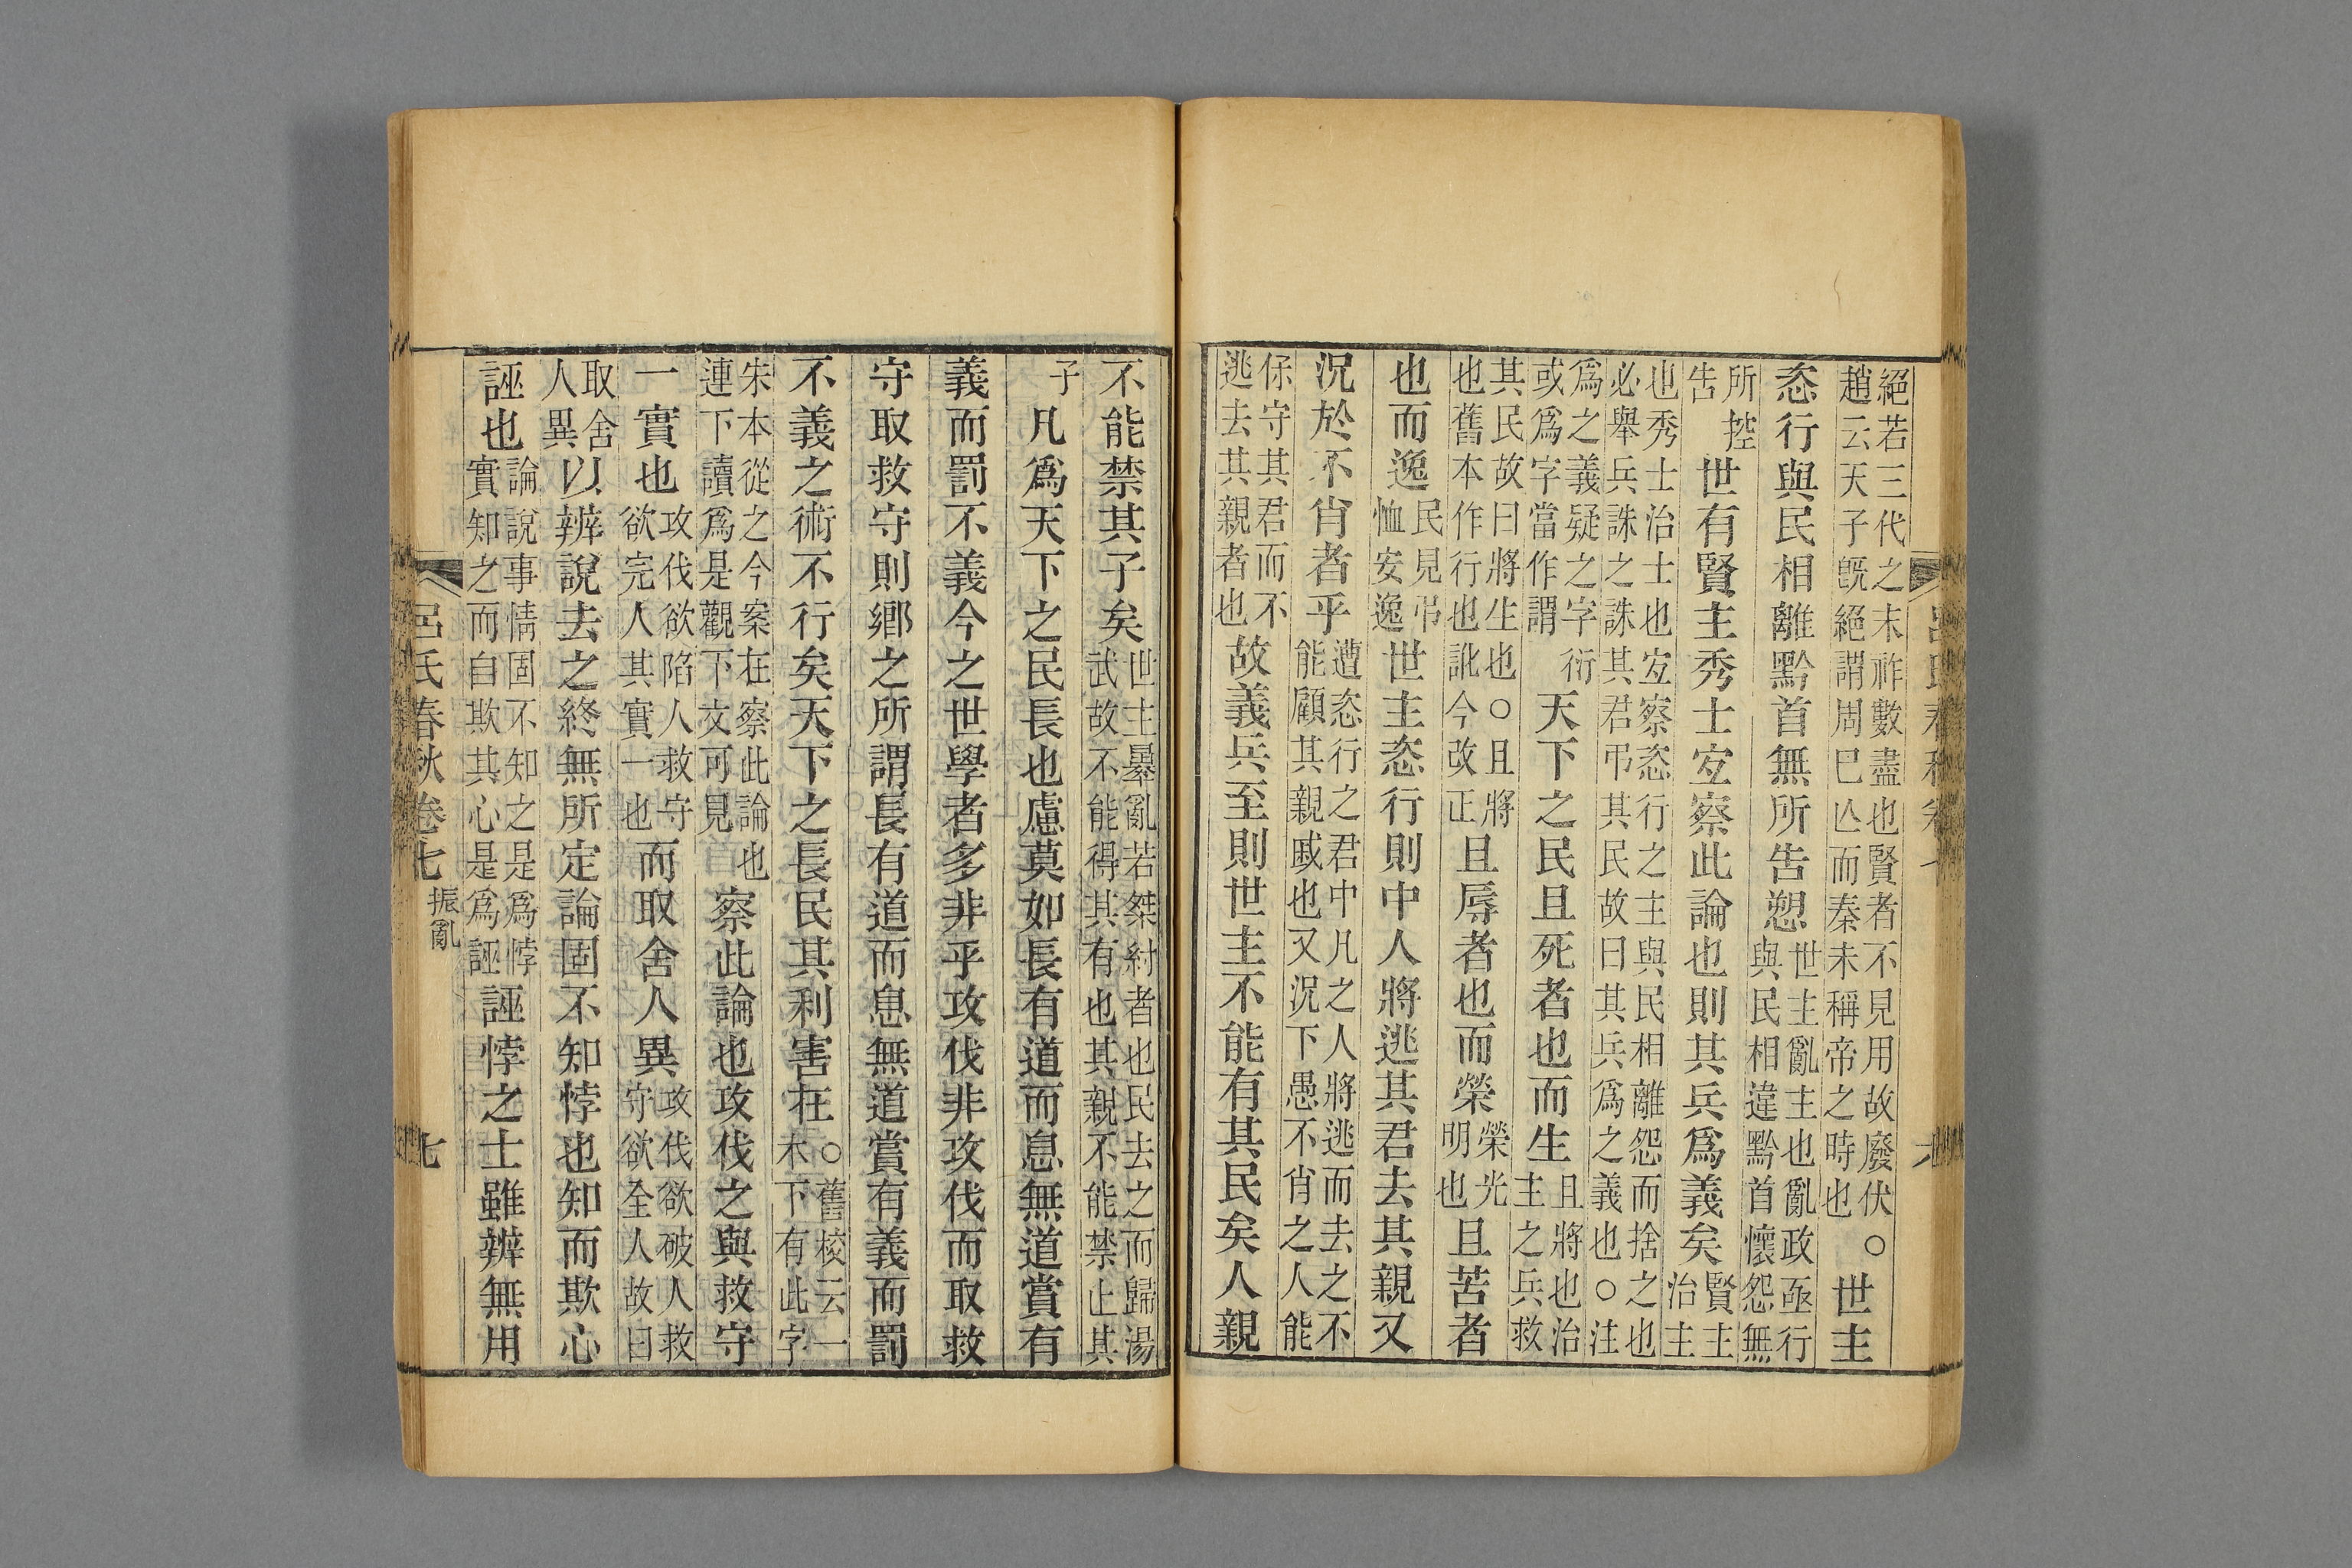 絕若三代之末祚數盡也賢者不見用故廢伏○趙云天子旣絕謂周巳亾而秦未稱帝之時也世主
恣行與民相離黔首無所告愬世主亂主也亂政亟行與民相違黔首懷怨無
所控告世有賢主秀士宐察此論也則其兵爲義矣賢主治主
也秀士治士也宐察恣行之主與民相離怨而捨之也必舉兵誅之誅其君弔其民故曰其兵爲之義也○注
爲之義疑之字衍或爲字當作謂天下之民且死者也而生且將也治主之兵救
其民故曰將生也○且將也舊本作行也訛今改正且辱者也而榮榮光明也且苦者
也而逸民見弔恤安逸世主恣行則中人將逃其君去其親又
況於不肖者乎遭恣行之君中凡之人將逃而去之不能顧其親戚也又況下愚不肖之人能
保守其君而不逃去其親者也故義兵至則世主不能有其民矣人親
不能禁其子矣世主暴亂若桀紂者也民去之而歸湯武故不能得其有也其親不能禁止其
子凡爲天下之民長也慮莫如長有道而息無道賞有
義而罰不義今之世學者多非乎攻伐非攻伐而取救
守取救守則鄉之所謂長有道而息無道賞有義而罰
不義之術不行矣天下之長民其利害在○舊校云一本下有此字
朱本從之今案在察此論也連下讀爲是觀下文可見察此論也攻伐之與救守
一實也攻伐欲陷人救守欲完人其實一也而取舍人異攻伐欲破人救守欲全人故曰
取舍人異以辨說去之終無所定論固不知悖也知而欺心
誣也論說事情固不知之是爲悖實知之而自欺其心是爲誣誣悖之士雖辨無用
呂氏春秋卷七 振亂 七